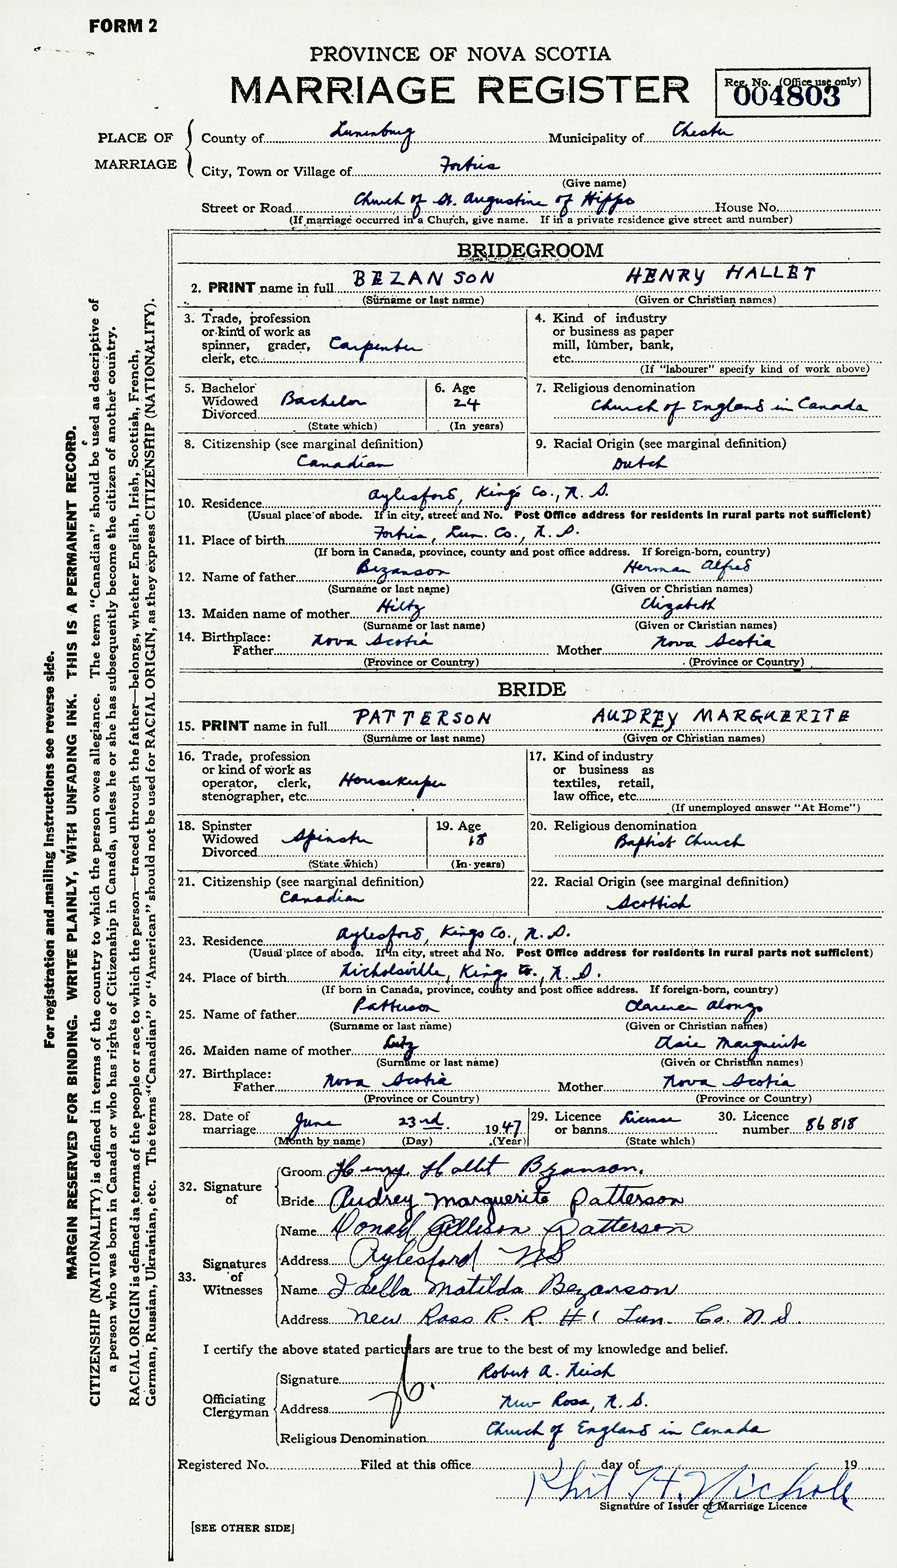 FORM 2
PROVINCE OF NOVA SCOTIA
MARRIAGE REGISTER
Reg. No. (Office use only)
004803
PLACE OF MARRIAGE
County of Lunenburg Municipality of Chester
City, Town or Village of Forties
(Give name)
Street or Road Church of St. Augustine of Hippo House No.
(If marriage occurred in a Church, give name. If in a private residence give street and number)
BRIDEGROOM
2. PRINT name in full BEZANSON HENRY HALLET
(Surname or last name) (Given or Christian names)
3. Trade, profession or kind of work as spinner, grader, clerk, etc. Carpenter
4. Kind of industry or business as paper mill, lumber, bank, etc.
(If "labourer" specify kind of work above)
5. Bachelor Widowed Divorced Bachelor
(State which)
6. Age 24
(In years)
7. Religious denomination
Church of England in Canada
8. Citizenship (see marginal definition)
Canadian
9. Racial Origin (see marginal definition)
Dutch
10. Residence Aylesford, Kings Co., N. S.
(Usual place of abode. If in city, street and No. Post Office address for residents in rural parts not sufficient)
11. Place of birth Forties, Lun. Co., N. S.
(If born in Canada, province, county and post office address. If foreign-born, country)
12. Name of father Bezanson Herman Alfred
(Surname or last name) (Given or Christian names)
13. Maiden name of mother Hiltz Elizabeth
(Surname or last name) (Given or Christian names)
14. Birthplace: Father Nova Scotia Mother Nova Scotia
(Province or Country) (Province or Country)
BRIDE
15. PRINT name in full PATTERSON AUDREY MARGUERITE
(Surname or last name) (Given or Christian names)
16. Trade, profession or kind of work as operator, clerk, stenographer, etc. Housekeeper
17. Kind of industry or business as textiles, retail, law office, etc.
(If unemployed answer "At Home")
18. Spinster Widowed Divorced Spinster
(State which)
19. Age 18
(In years)
20. Religious denomination
Baptist Church
21. Citizenship (see marginal definition)
Canadian
22. Racial Origin (see marginal definition)
Scottish
23. Residence Aylesford, Kings Co., N. S.
(Usual place of abode. If in city, street and No. Post Office address for residents in rural parts not sufficient)
24. Place of birth Nicholsville, Kings Co., N. S.
(If born in Canada, province, county and post office address. If foreign-born, country)
25. Name of father Patterson Clarence Alonzo
(Surname or last name) (Given or Christian names)
26. Maiden name of mother Lutz Elsie Marguerite
(Surname or last name) (Given or Christian names)
27. Birthplace: Father Nova Scotia Mother Nova Scotia
(Province or Country) (Province or Country)
28. Date of marriage June 23rd 1947
(Month by name) (Day) (Year)
29. Licence or banns License
(State which)
30. Licence number 86818
32. Signature of
Groom Henry Hallet Bezanson.
Bride Audrey Marguerite Patterson
33. Signatures of Witnesses
Name Donald Patterson
Address Aylesford NS
Name Idella Matilda Bezanson
Address New Ross R. R #1 Lun. Co. N S.
I certify the above stated particulars are true to the best of my knowledge and belief.
Officiating Clergyman
Signature Robert A.
Address New Ross, N. S.
Religious Denomination Church of England in Canada
Registered No. Filed at this office day of 19
Phil H. Nichols
Signature of Issuer of Marriage Licence
[SEE OTHER SIDE]
For registration and mailing instructions see reverse side.
MARGIN RESERVED FOR BINDING. WRITE PLAINLY, WITH UNFADING INK. THIS IS A PERMANENT RECORD.
CITIZENSHIP (NATIONALITY) is defined in terms of the country to which the person owes allegiance. The term "Canadian" should be used as descriptive of
a person who was born in Canada or who has rights of Citizenship in Canada, unless he or she has subsequently become the citizen of another country.
RACIAL ORIGIN is defined in terms of the people or race to which the person—traced through the father—belongs, whether English, Irish, Scottish, French,
German, Russian, Ukrainian, etc. The terms "Canadian" or "American" should not be used for RACIAL ORIGIN, as they express CITIZENSHIP (NATIONALITY).